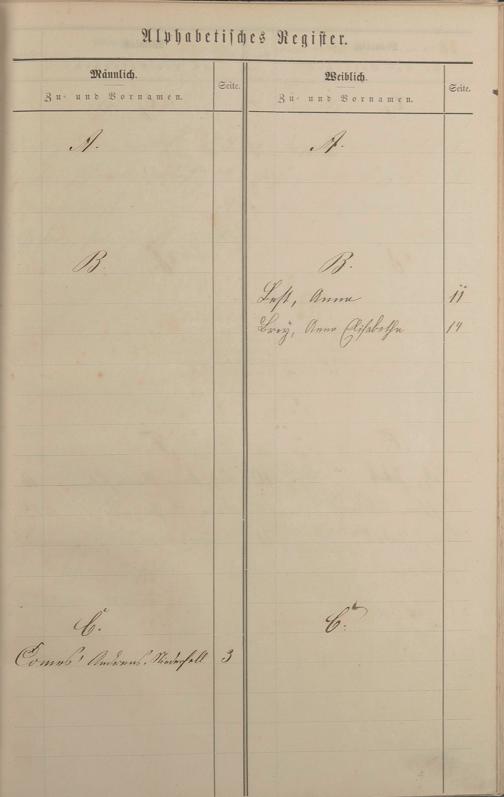 Alphabetisches Register.
Männlich.
Zu- und Vornamen.
Seite.
Weiblich.
Zu- und Vornamen.
Seite.
A.
A.
B.
B.
Best, Anna 11
Brey, Anna Elisabetha 14
C.
C.
Comes Andreas, 3